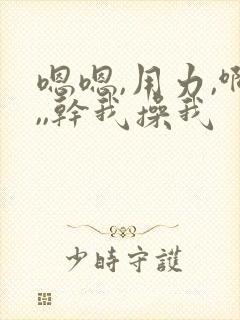 嗯嗯,用力,啊
,,幹我操我
少時守護